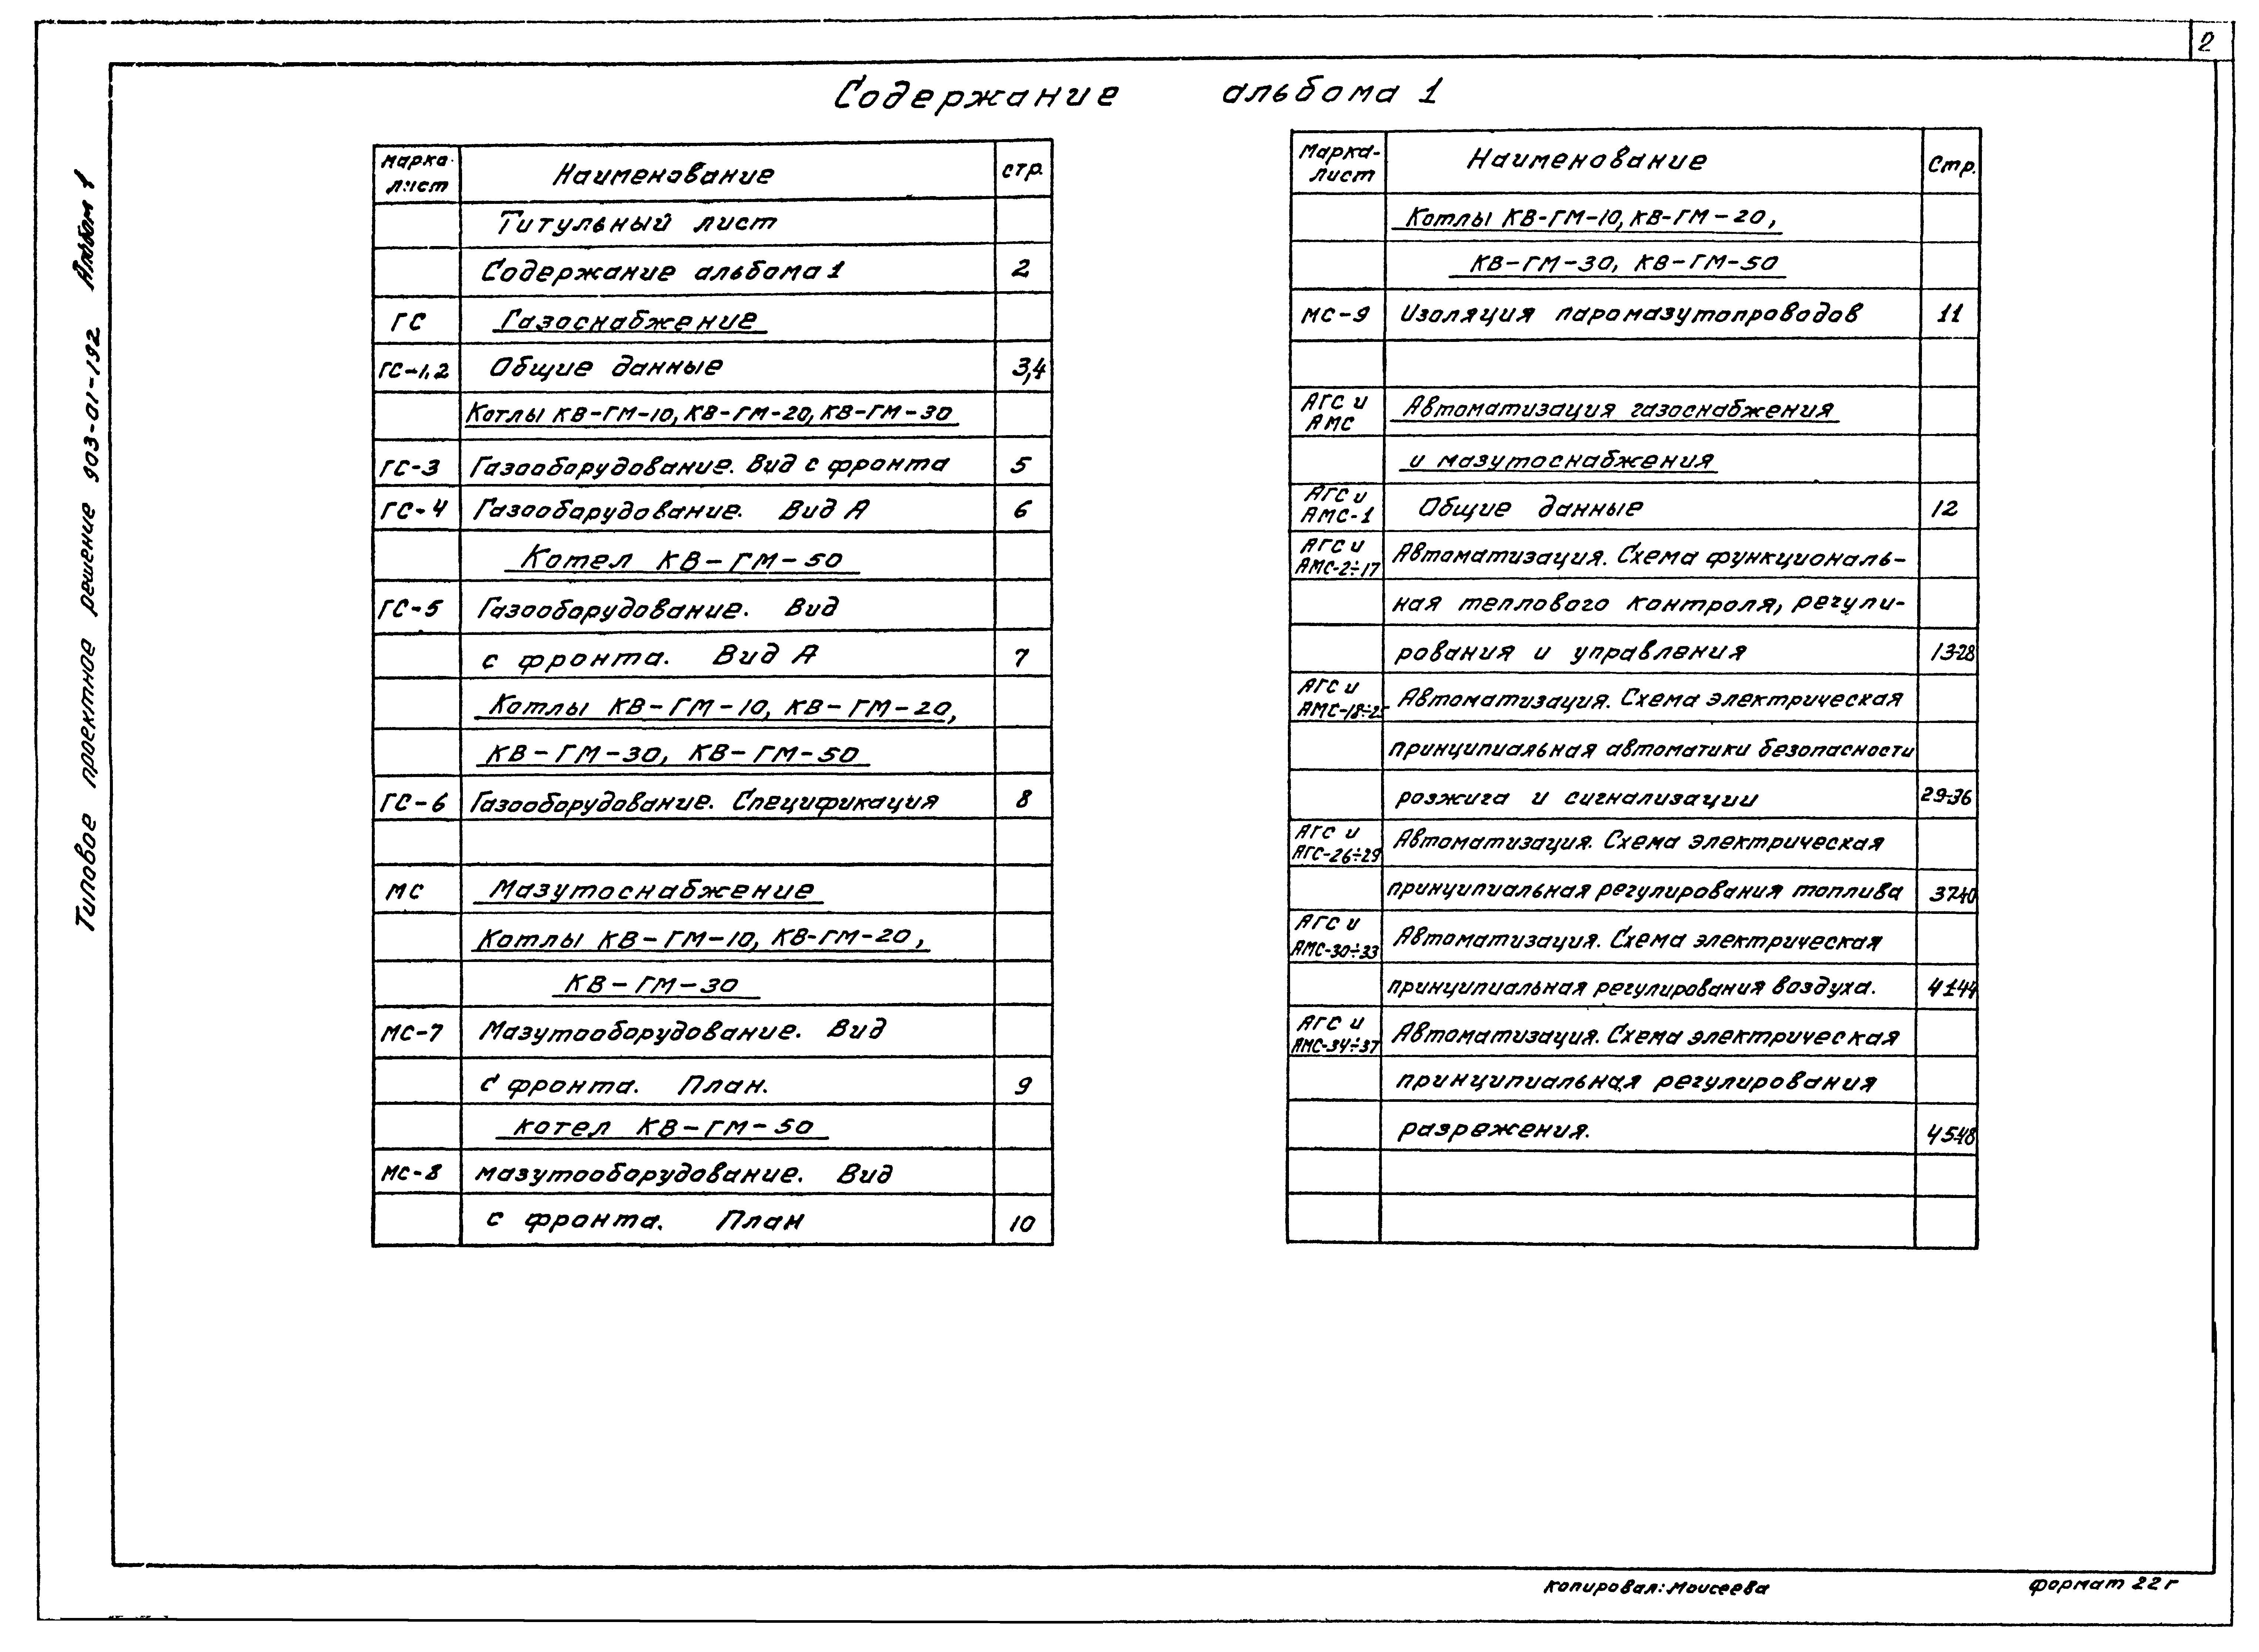 2
Содержание альбома 1
Типовое проектное решение 903-01-192 Альбом 1
Марка- Наименование стр.
лист
Титульный лист
Содержание альбома 1 2
ГС Газоснабжение
ГС-1,2 Общие данные 3,4
Котлы КВ-ГМ-10, КВ-ГМ-20, КВ-ГМ-30
ГС-3 Газооборудование. Вид с фронта 5
ГС-4 Газооборудование. Вид А 6
Котел КВ-ГМ-50
ГС-5 Газооборудование. Вид
с фронта. Вид А 7
Котлы КВ-ГМ-10, КВ-ГМ-20,
КВ-ГМ-30, КВ-ГМ-50
ГС-6 Газооборудование. Спецификация 8
МС Мазутоснабжение
Котлы КВ-ГМ-10, КВ-ГМ-20,
КВ-ГМ-30
МС-7 Мазутооборудование. Вид
с фронта. План. 9
котел КВ-ГМ-50
МС-8 мазутооборудование. Вид
с фронта. План 10
Марка- Наименование Стр.
лист
Котлы КВ-ГМ-10, КВ-ГМ-20,
КВ-ГМ-30, КВ-ГМ-50
МС-9 Изоляция паромазутопроводов 11
АГС и Автоматизация газоснабжения
АМС
и мазутоснабжения
АГС и Общие данные 12
АМС-1
АГС и Автоматизация. Схема функциональ-
АМС-2÷17
ная теплового контроля, регули-
рования и управления 13-28
АГС и Автоматизация. Схема электрическая
АМС-18÷25
принципиальная автоматики безопасности
розжига и сигнализации 29-36
АГС и Автоматизация. Схема электрическая
АГС-26÷29
принципиальная регулирования топлива 37-40
АГС и Автоматизация. Схема электрическая
АМС-30÷33
принципиальная регулирования воздуха. 41-44
АГС и Автоматизация. Схема электрическая
АМС-34÷37
принципиальная регулирования
разрежения. 45-48
копировал: Моисеева формат 22г